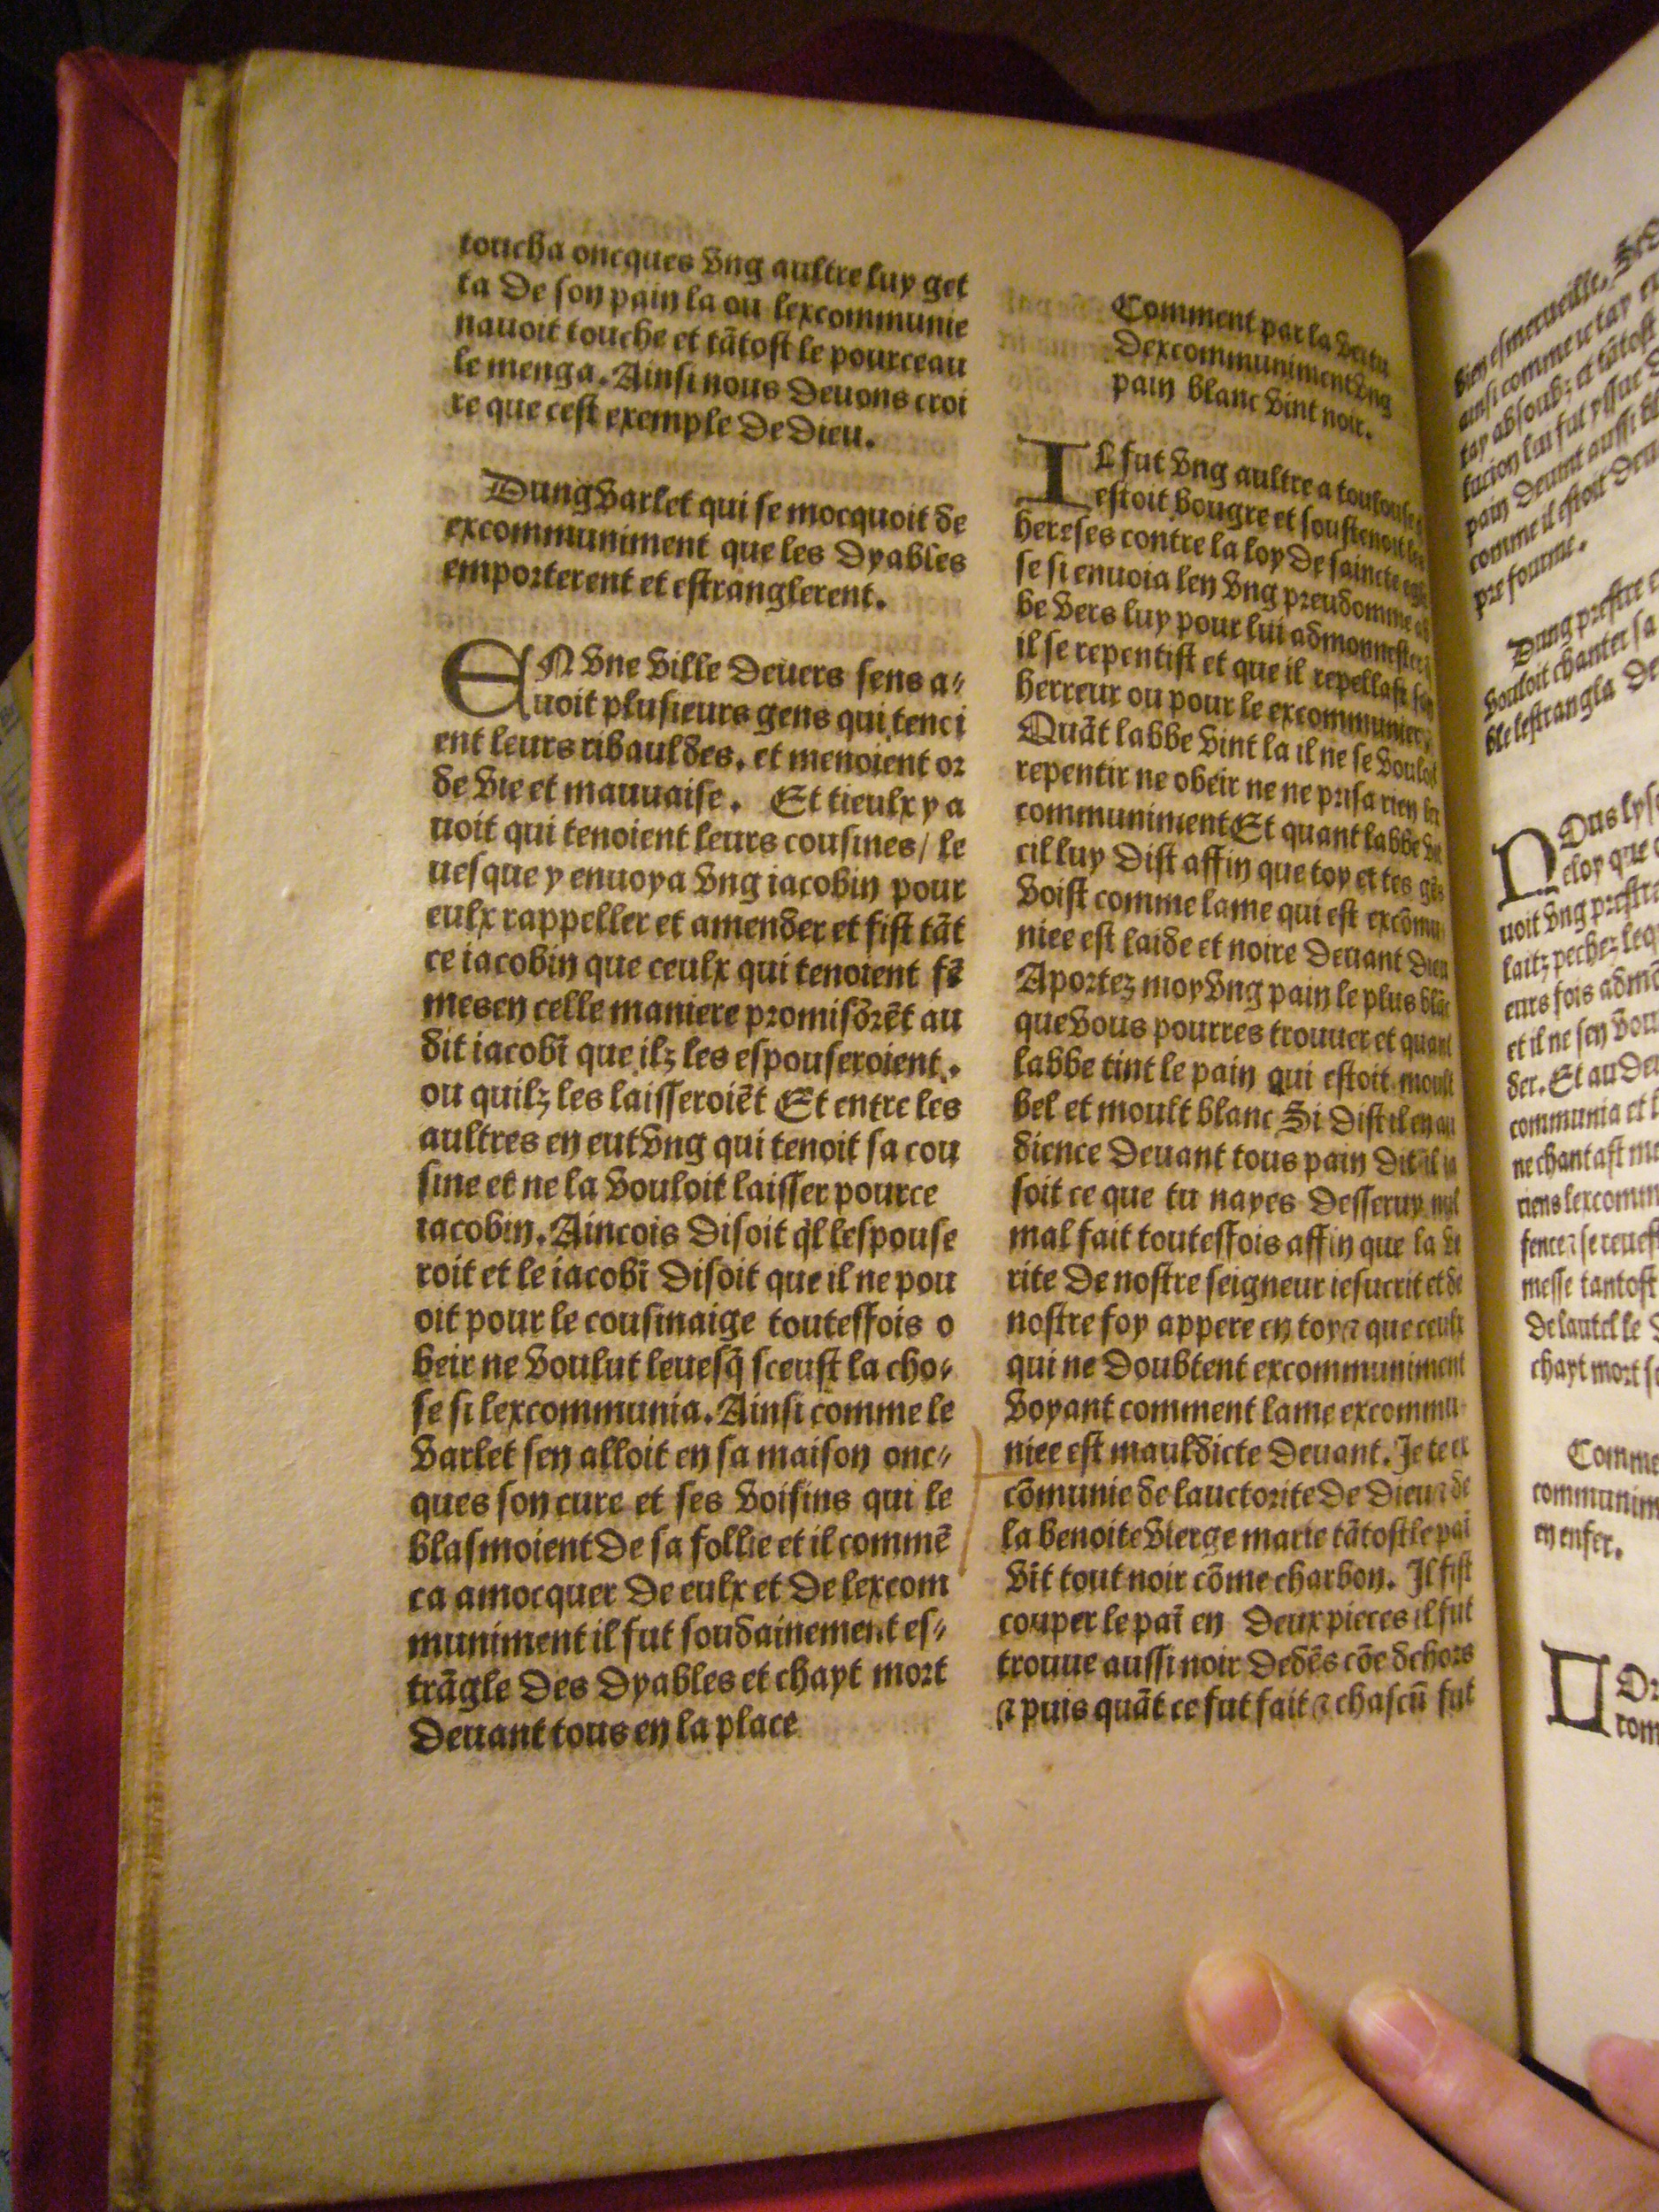 toucha oncques vng aultre luy get
ta de son pain la ou lexcommunie
nauoit touche et tãtost le pourceau
le menga. Ainsi nous deuons croi
re que cest exemple de dieu.
Dung varlet qui se mocquoit de
excommuniment que les dyables
emporterent et estranglerent.
EN vne ville deuers sens a⸗
uoit plusieurs gens qui tenci
ent leurs ribauldes. et menoient or
de vie et mauuaise. Et tieulx y a
uoit qui tenoient leurs cousines/ le
uesque y enuoya vng iacobin pour
eulx rappeller et amender et fist tãt
ce iacobin que ceulx qui tenoient fẽ
mes en celle maniere promisdrẽt au
dit iacobĩ que ilz les espouseroient.
ou quilz les laisseroiẽt Et entre les
aultres en eut vng qui tenoit sa cou
sine et ne la vouloit laisser pource
iacobin. Aincois disoit q̃l lespouse
roit et le iacobĩ disoit que il ne pou
oit pour le cousinaige touteffois o
beir ne voulut leuesq̃ sceust la cho⸗
se si lexcommunia. Ainsi comme le
varlet sen alloit en sa maison onc⸗
ques son cure et ses voisins qui le
blasmoient de sa follie et il commẽ
ca a mocquer de eulx et de lexcom
muniment il fut soudainement es⸗
trãgle des dyables et chayt mort
deuant tous en la place
Comment par la vertu
dexcommuniment vng
pain blanc vint noir.
IL fut vng aultre a toulouse
estoit bougre et soustenoit les
hereses contre la loy de saincte egli
se si enuoia len vng preudomme ab
be vers luy pour lui admonnester
il se repentist et que il repellast son
herreur ou pour le excommunier,
Quãt labbe vint la il ne se vouloit
repentir ne obeir ne ne prisa rien
communiment Et quant labbe vit
cil luy dist affin que toy et tes gẽs
voist comme lame qui est excõmu
niee est laide et noire deuant dieu
Aportez moy vng pain le plus blãc
que vous pourres trouuer et quant
labbe tint le pain qui estoit moult
bel et moult blanc Si dist il en au
dience deuant tous pain dit il ia
soit ce que tu nayes desseruy nul
mal fait touteffois affin que la ve
rite de nostre seigneur iesucrit et de
nostre foy appere en toy ⁊ que ceulx
qui ne doubtent excommuniment
voyant comment lame excommu
niee est mauldicte deuant. Je te ex
cõmunie de lauctorite de dieu ⁊ de
la benoite vierge marie tãtost le pai
vĩt tout noir cõme charbon. Il fist
couper le paĩ en deux pieces il fut
trouue aussi noir dedẽs cõe dehors
⁊ puis quãt ce fut fait ⁊ chascũ fut
bien esmerueille.
ainsi comme ie tay
tay absoubz et tãtost
lui fut yssue
pain deuint aussi
comme il estoit
pre fourme.
Dung prestre
vouloit chanter sa
ble lestrangla
NOus
eloy que
uoit vng prestre
laitz pechez
eurs fois admõ
et il ne sen
der. Et au
communia et
ne chantast
riens
se reuest
messe tantost
de lautel le
chayt mort
Comme
communim
en enfer.
Or
com